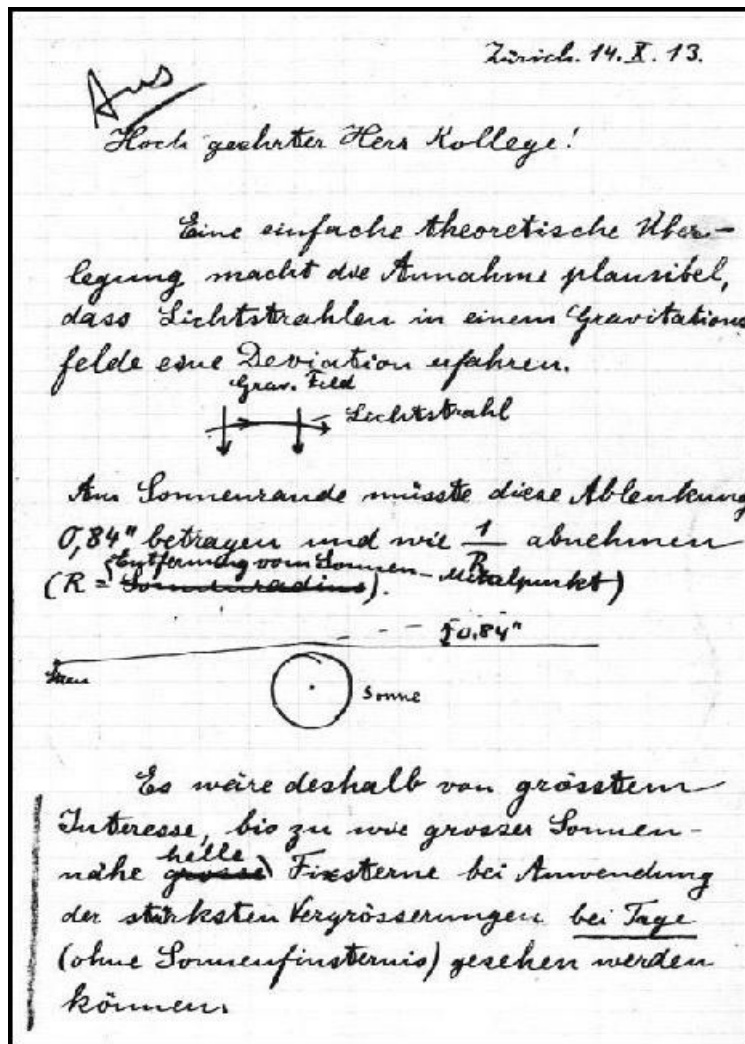 Zürich. 14. X. 13.
Aus
Hoch geehrter Herr Kollege!
Eine einfache theoretische Über-
legung macht die Annahme plausibel,
dass Lichtstrahlen in einem Gravitations
felde eine Deviation erfahren.
Grav. Feld
Lichtstrahl
Am Sonnenrande müsste diese Ablenkung
0,84" betragen und wie 1/R abnehmen
(R = Sonnenradius). Entfernung vom Sonnen-Mittelpunkt)
0.84"
Stern
Sonne
Es wäre deshalb von grösstem
Interesse, bis zu wie grosser Sonnen-
nähe grosse helle Fixsterne bei Anwendung
der stärksten Vergrösserungen bei Tage
(ohne Sonnenfinsternis) gesehen werden
können.